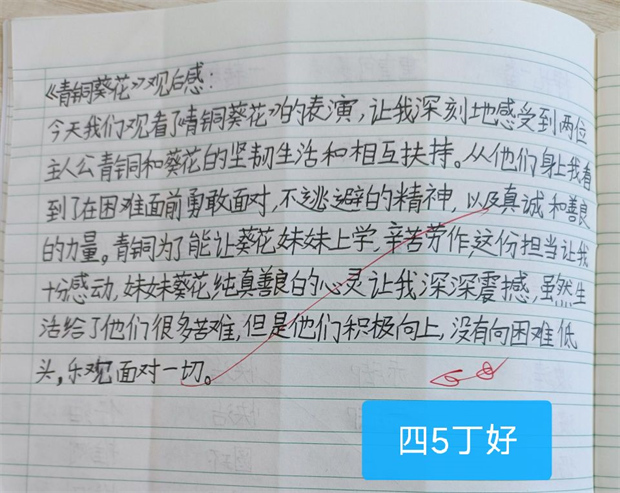 《青铜葵花》观后感：
今天我们观看了《青铜葵花》的表演，让我深刻地感受到两位
主人公青铜和葵花的坚韧生活和相互扶持。从他们身上我看
到了在困难面前勇敢面对，不逃避的精神，以及真诚和善良
的力量。青铜为了能让葵花妹妹上学，辛苦劳作，这份担当让我
十分感动，妹妹葵花纯真善良的心灵让我深深震撼，虽然生
活给了他们很多苦难，但是他们积极向上，没有向困难低
头，乐观面对一切。
四5丁好